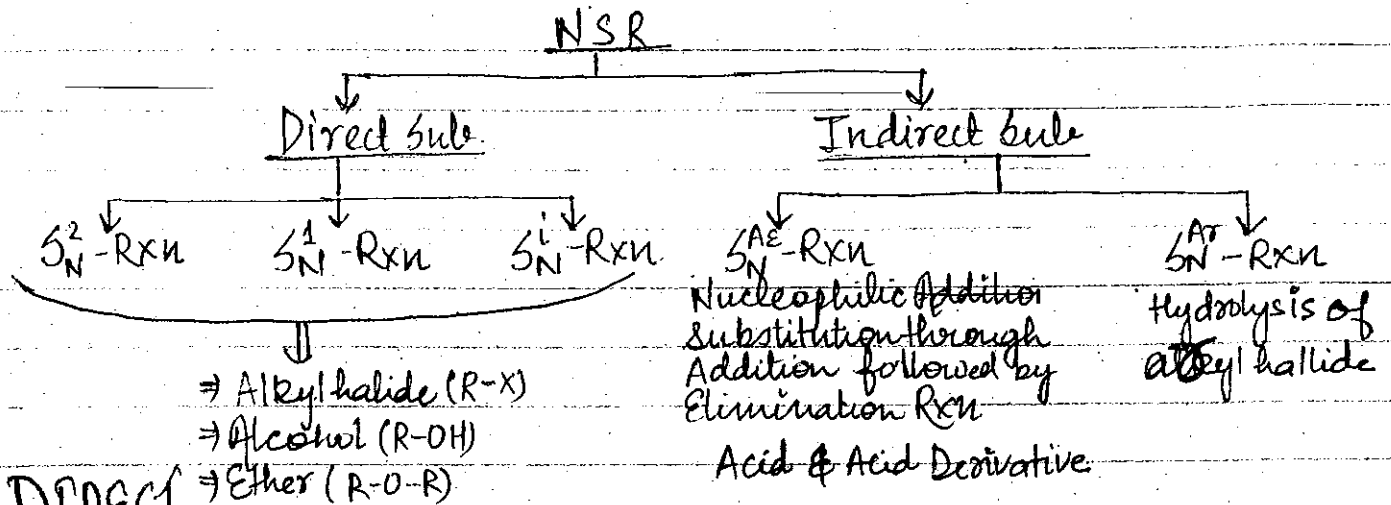 NSR
Direct Sub.
Indirect Sub
S_N^2-Rxn
S_N^1-Rxn
S_N^i-Rxn
S_N^AE-Rxn
S_N^Ar-Rxn
Nucleophilic Addition
Substitution through
Addition followed by
Elimination Rxn
Acid & Acid Derivative
Hydrolysis of
hallide
⇒ Alkyl halide (R-X)
⇒ Alcohol (R-OH)
⇒ Ether (R-O-R)